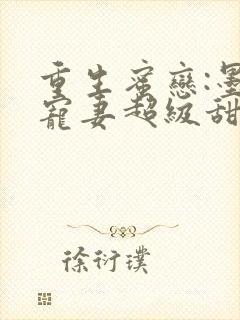 重生蜜戀:墨
寵妻超級甜
徐衍璞